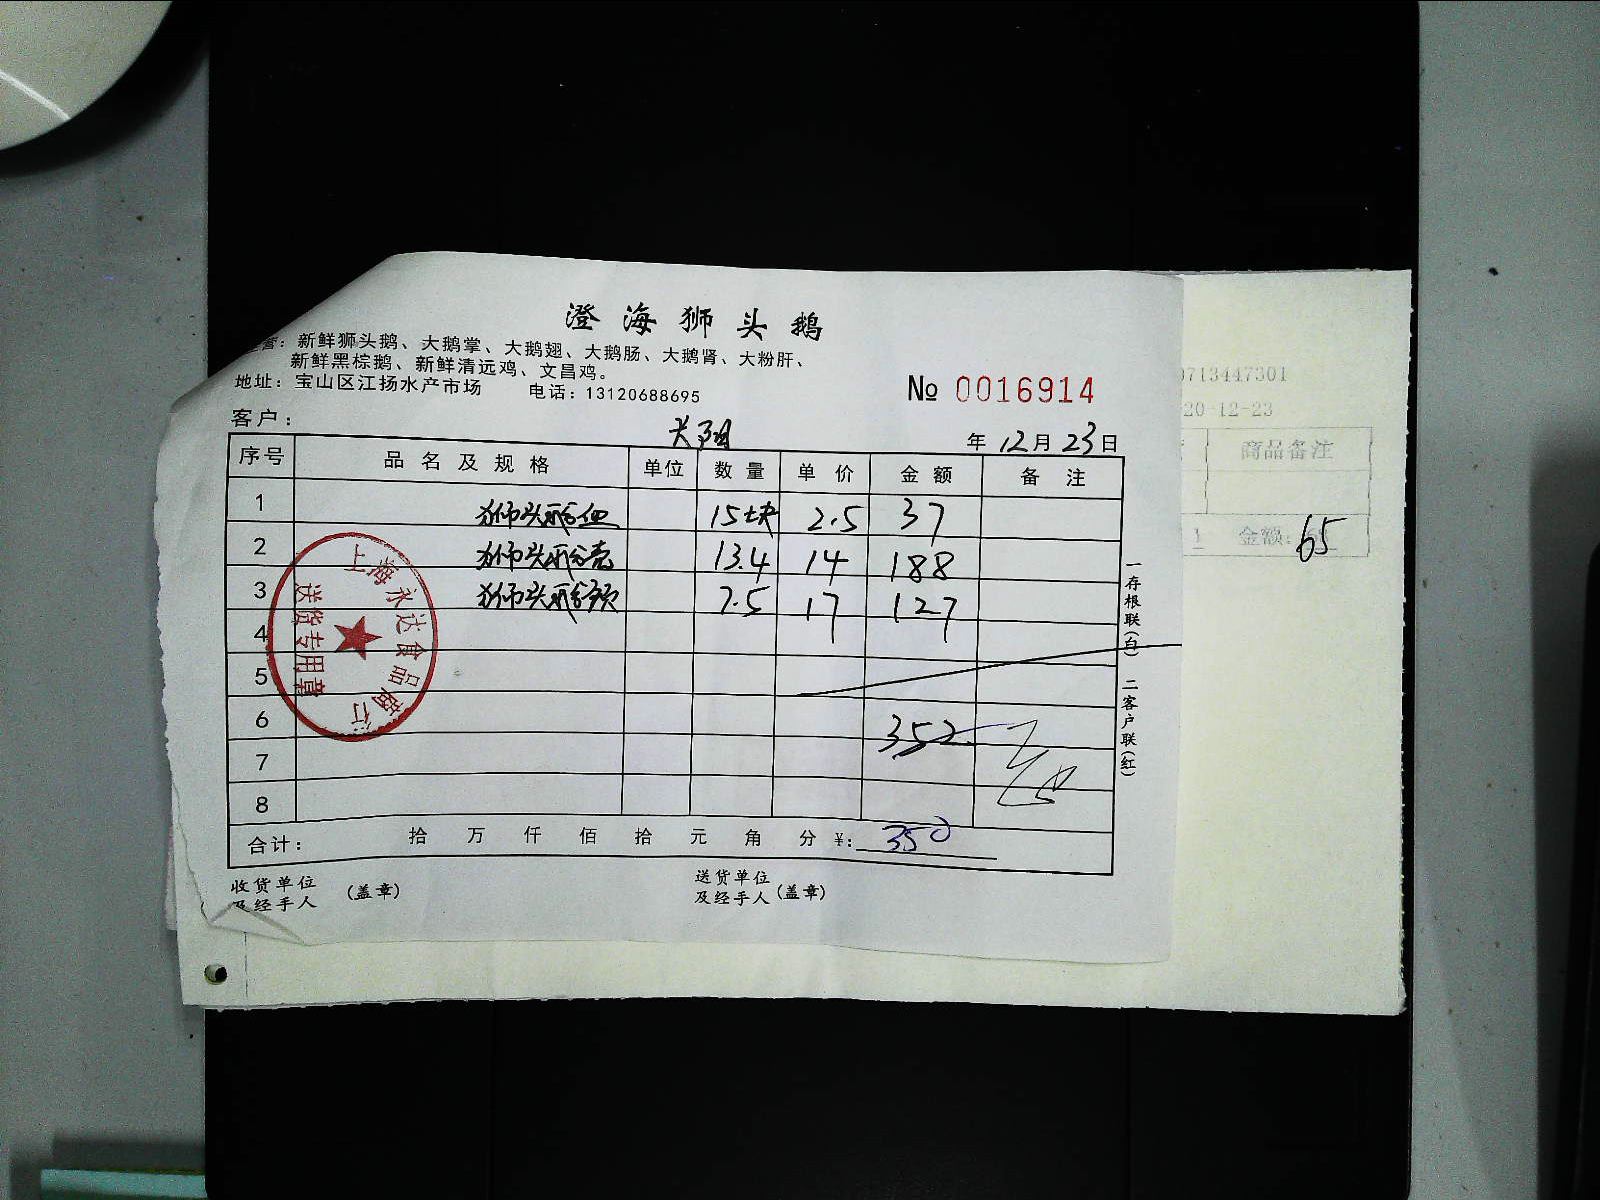 澄海狮头鹅
营：新鲜狮头鹅、大鹅掌、大鹅翅、大鹅肠、大鹅肾、大粉肝、
新鲜黑棕鹅、新鲜清远鸡、文昌鸡。
地址：宝山区江扬水产市场 电话：13120688695
№ 0016914
客户：
年 12 月 23 日
序号 品名及规格 单位 数量 单价 金额 备注
1 狮头鹅血 15块 2.5 37
2 狮头鹅壳 13.4 14 188
3 狮头鹅颈 7.5 17 127
4
5
6 352
7
8
合计： 拾 万 仟 佰 拾 元 角 分 ¥: 350
收货单位 (盖章) 送货单位 (盖章)
及经手人 及经手人
一存根联(白) 二客户联(红)
上海永达食品商行
送货专用章
0713447301
20-12-23
商品备注
1 金额: 65